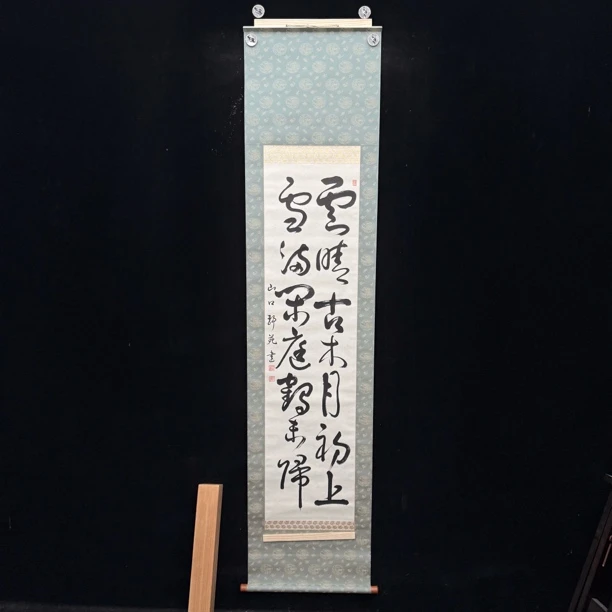 雲晴古木月初上
雪満閑庭鶴未帰
山口静苑書